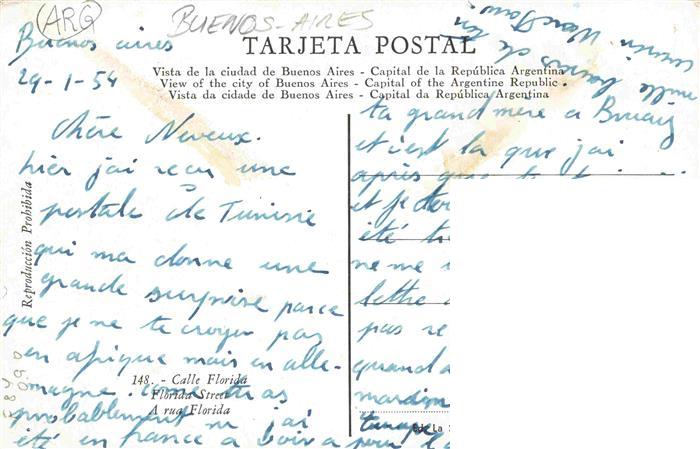 (ARG)
BUENOS-AIRES
Buenos aires
29-1-54
TARJETA POSTAL
Vista de la ciudad de Buenos Aires - Capital de la República Argentina
View of the city of Buenos Aires - Capital of the Argentine Republic.
Vista da cidade de Buenos Aires - Capital da República Argentina
Chére Neveux.
hier j'ai recu une
postale de Tunisie
qui ma donne une
grande surprise parce
que je ne te croyer pas
en afrique mais en alle-
magne. come tu as
probablement su j'ai
été en france a
Reproducción Prohibida
148. - Calle Florida
Florida Street
A rua Florida
mille de ton
ta grand mère a Bruay
et c'est la que j'ai
après
et je
été
ne me
lettre
pas re
quand
Ed. La